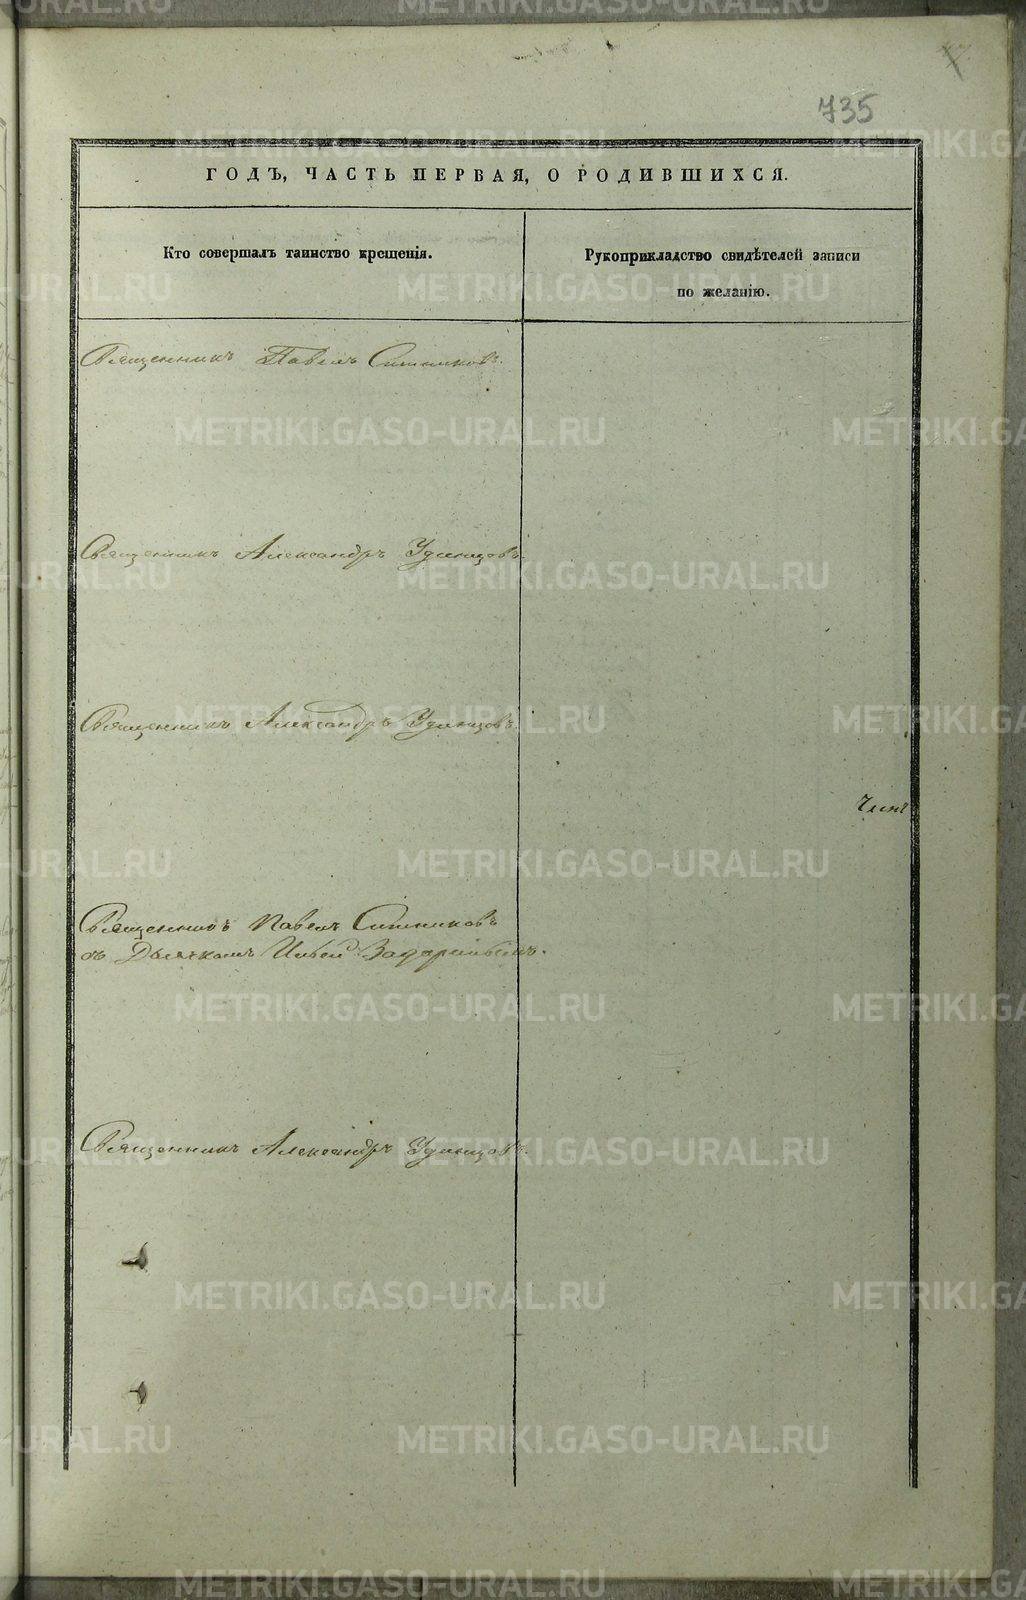 735
ГОДЪ, ЧАСТЬ ПЕРВАЯ, О РОДИВШИХСЯ.
Кто совершалъ таинство крещенія.
Рукоприкладство свидѣтелей записи
по желанію.
Священникъ Павелъ Ситниковъ.
Священникъ Александръ Удинцовъ.
Священникъ Александръ Удинцовъ.
Священникъ Павелъ Ситниковъ
съ Дьячкомъ Ильей
Священникъ Александръ Удинцовъ.
METRIKI.GASO-URAL.RU